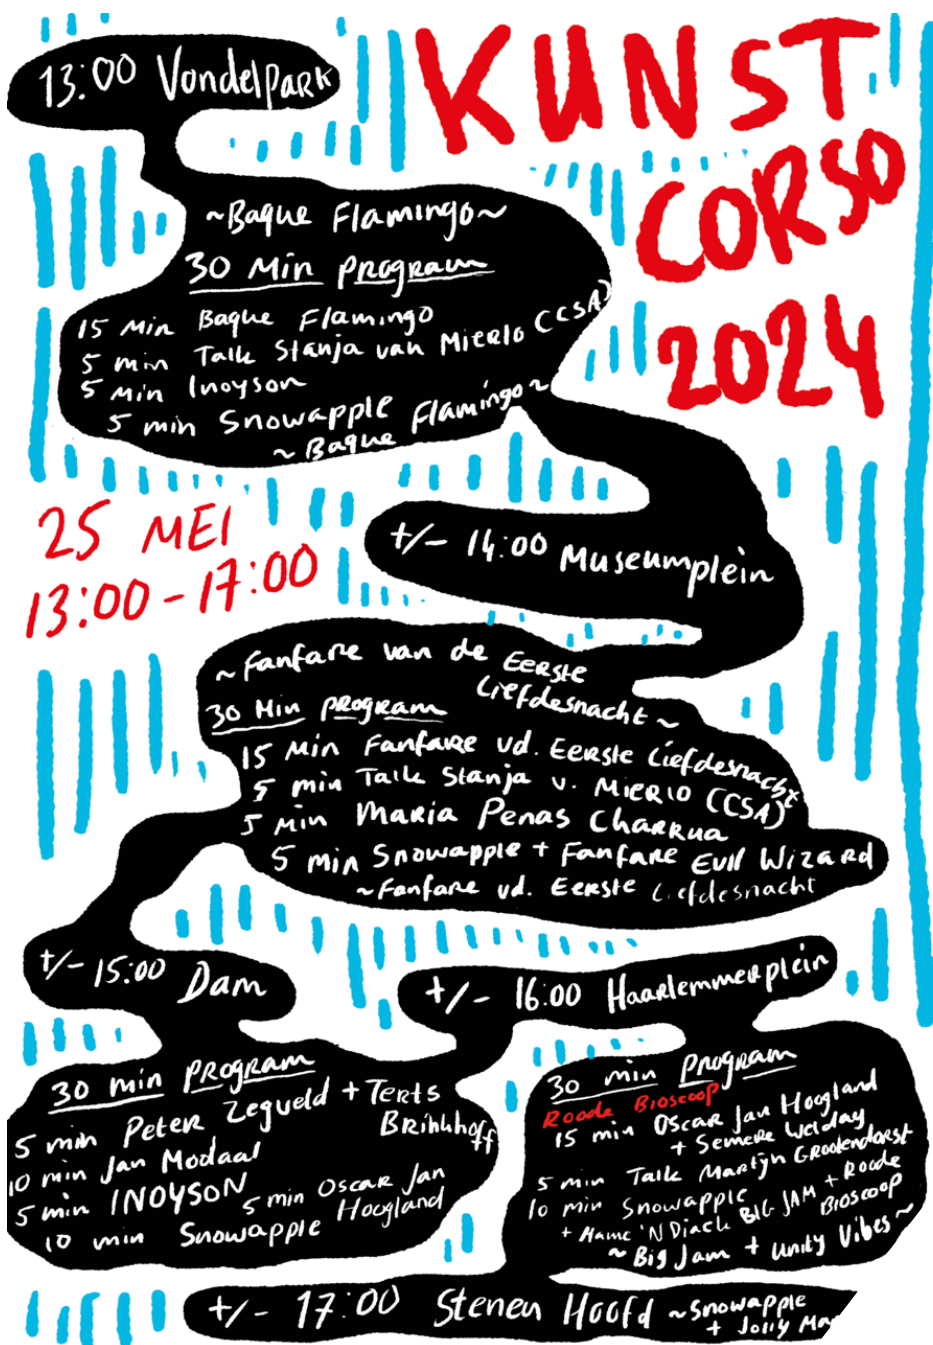 KUNST
CORSO
2024
13:00 Vondelpark
~Baque Flamingo~
30 Min Program
15 Min Baque Flamingo
5 min Talk Stanja van Mierlo (CCSA)
5 Min Inoyson
5 min Snowapple
~ Baque Flamingo~
25 MEI
13:00-17:00
+/- 14:00 Museumplein
~Fanfare van de Eerste
Liefdesnacht~
30 Min Program
15 Min Fanfare vd. Eerste Liefdesnacht
5 min Talk Stanja v. Mierlo (CCSA)
5 Min Maria Penas Charrua
5 min Snowapple + Fanfare Evil Wizard
~Fanfare vd. Eerste Liefdesnacht
+/- 15:00 Dam
30 min Program
5 min Peter Zegveld + Terts
Brinkhoff
10 min Jan Modaal
5 min INOYSON
5 min Oscar Jan
Hoogland
10 min Snowapple
+/- 16:00 Haarlemmerplein
30 min Program
Roode Bioscoop
15 min Oscar Jan Hoogland
+ Semere Welday
5 min Talk Martijn Grootendorst
10 min Snowapple
+ Mame 'N Diack BIG JAM + Roode
Bioscoop
~ Big Jam + Unity Vibes~
+/- 17:00 Stenen Hoofd ~Snowapple
+ Jolly